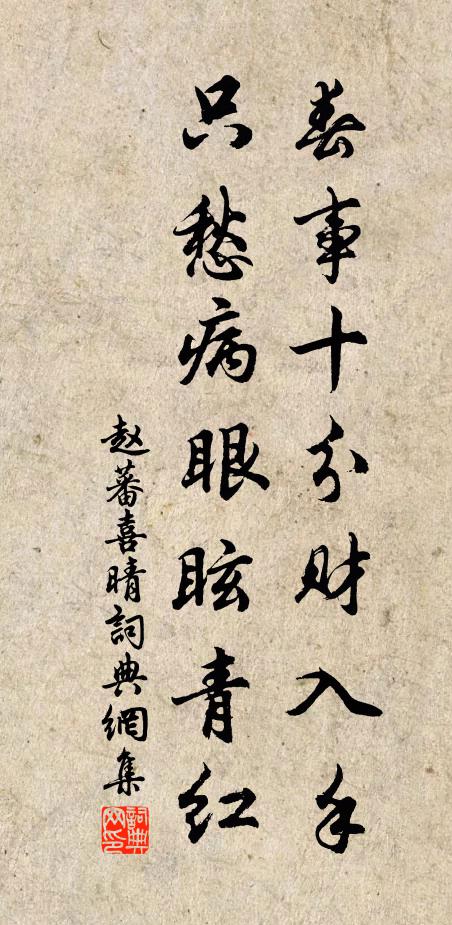 春事十分财入手
只愁病眼眩青红
赵蕃喜晴詞典網集
詞典网印